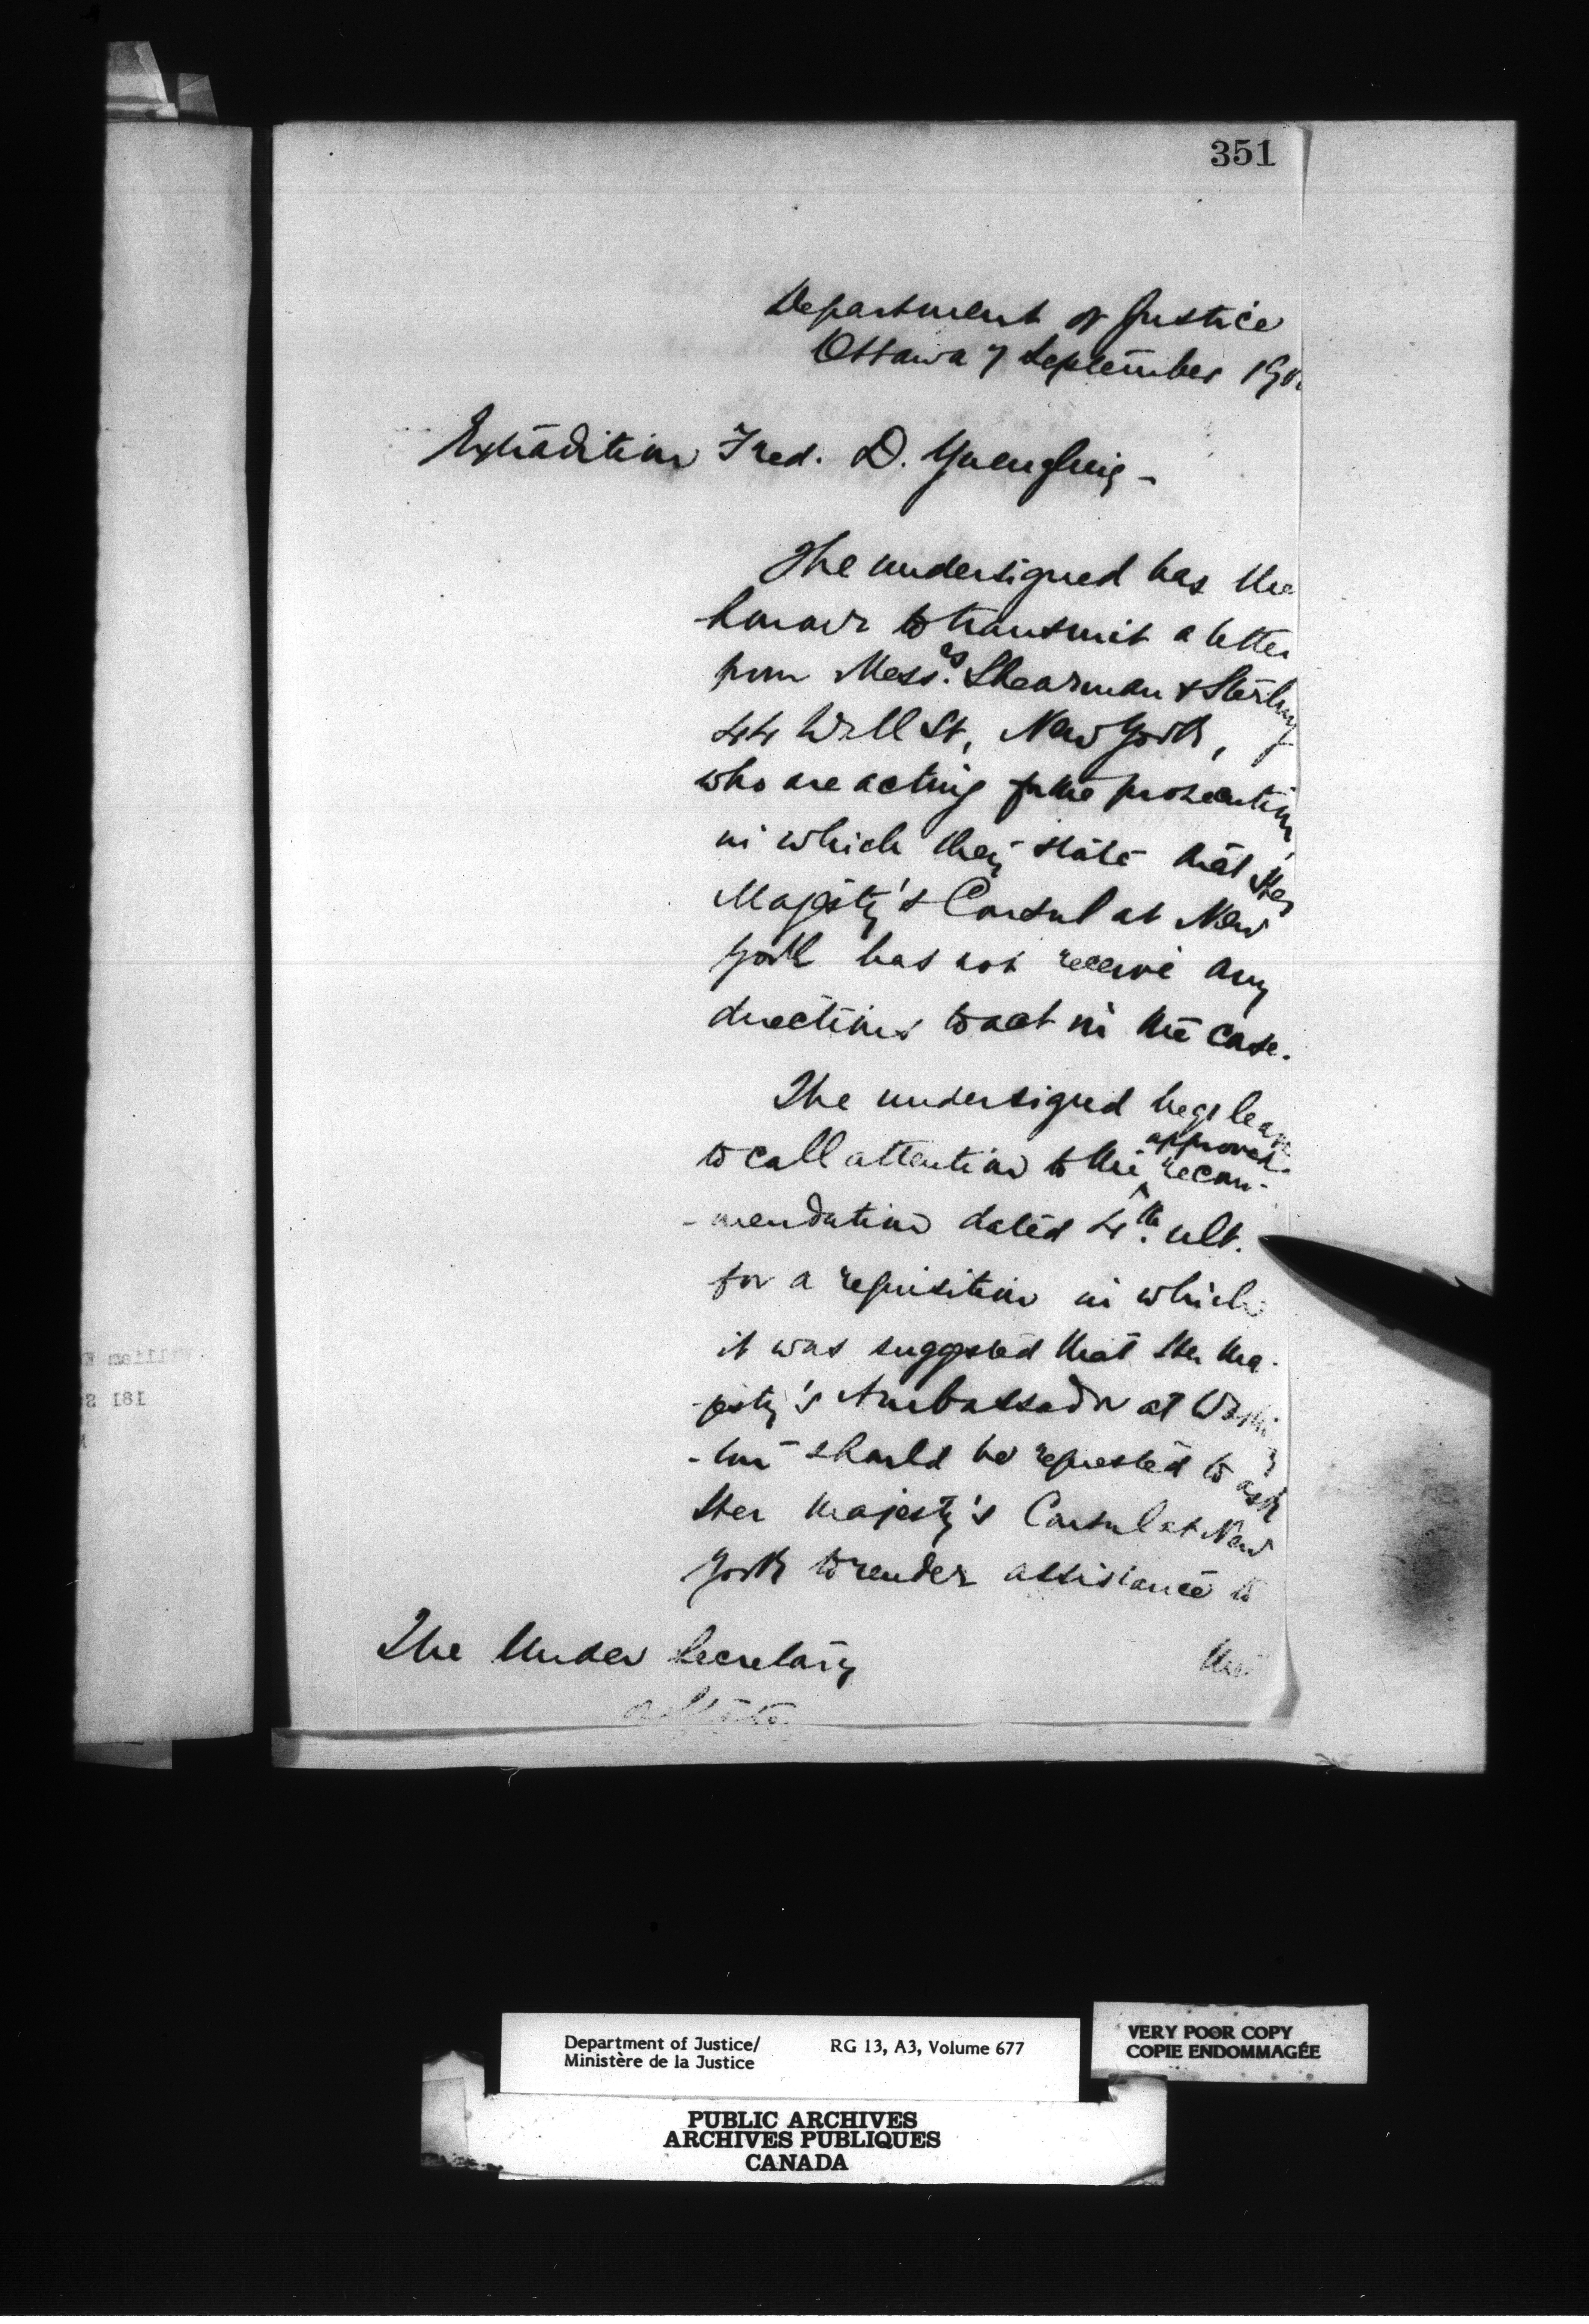 351
Department of Justice
Ottawa 7 September 190
Extradition Fred. D. Yuengling -
The undersigned has the
honour to transmit a letter
from Mess.rs Shearman & Sterling
44 Wall St, New York,
who are acting for the prosecution,
in which they state that Her
Majesty's Consul at New
York has not receive any
directions to act in the case.
The undersigned begs leave
to call attention to the approved recom-
-mendation dated 4th. ult.
for a requisition in which
it was suggested that Her Ma-
-jesty's Ambassador at Washing
-ton should be requested to ask
Her Majesty's Consul at New
York to render assistance to
The Under Secretary
the
of State
181
Department of Justice/
Ministère de la Justice
RG 13, A3, Volume 677
VERY POOR COPY
COPIE ENDOMMAGÉE
PUBLIC ARCHIVES
ARCHIVES PUBLIQUES
CANADA